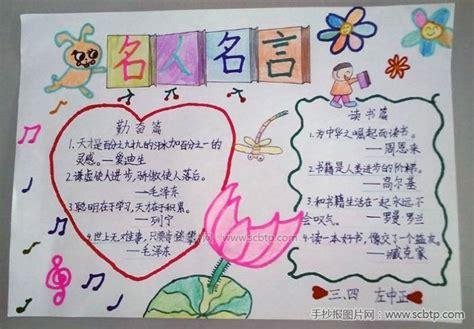 名人名言
勤奋篇
1.天才是百分之九十九的汗水加百分之一的
灵感。——爱迪生
2.谦虚使人进步，骄傲使人落后。
——毛泽东
3.聪明在于学习，天才在于积累。
——列宁
4.世上无难事，只要肯登攀
——毛泽东
读书篇
1.为中华之崛起而读书。
——周恩来
2.书籍是人类进步的阶梯。
——高尔基
3.和书籍生活在一起永远不
会叹气。——罗曼罗兰
4.读一本好书，像交了一个益友。
——臧克家
三.四 左中正
www.scbtp.com
手抄报图片网：www.scbtp.com